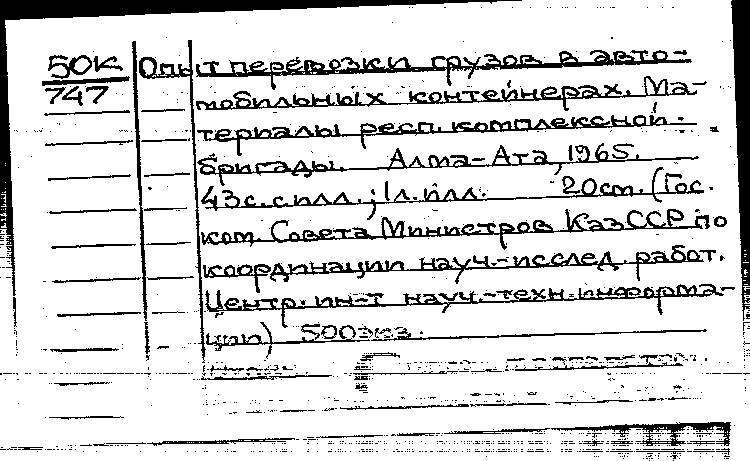 50К Опыт перевозки грузов в авто-
747 мобильных контейнерах. Ма-
териалы респ. комплексной
бригады. Алма-Ата, 1965.
43с. с илл.; 1л. илл. 20см. (Гос.
ком. Совета Министров КазССР по
координации науч.-исслед. работ.
Центр. ин-т науч.-техн. информа-
ции) 500экз.